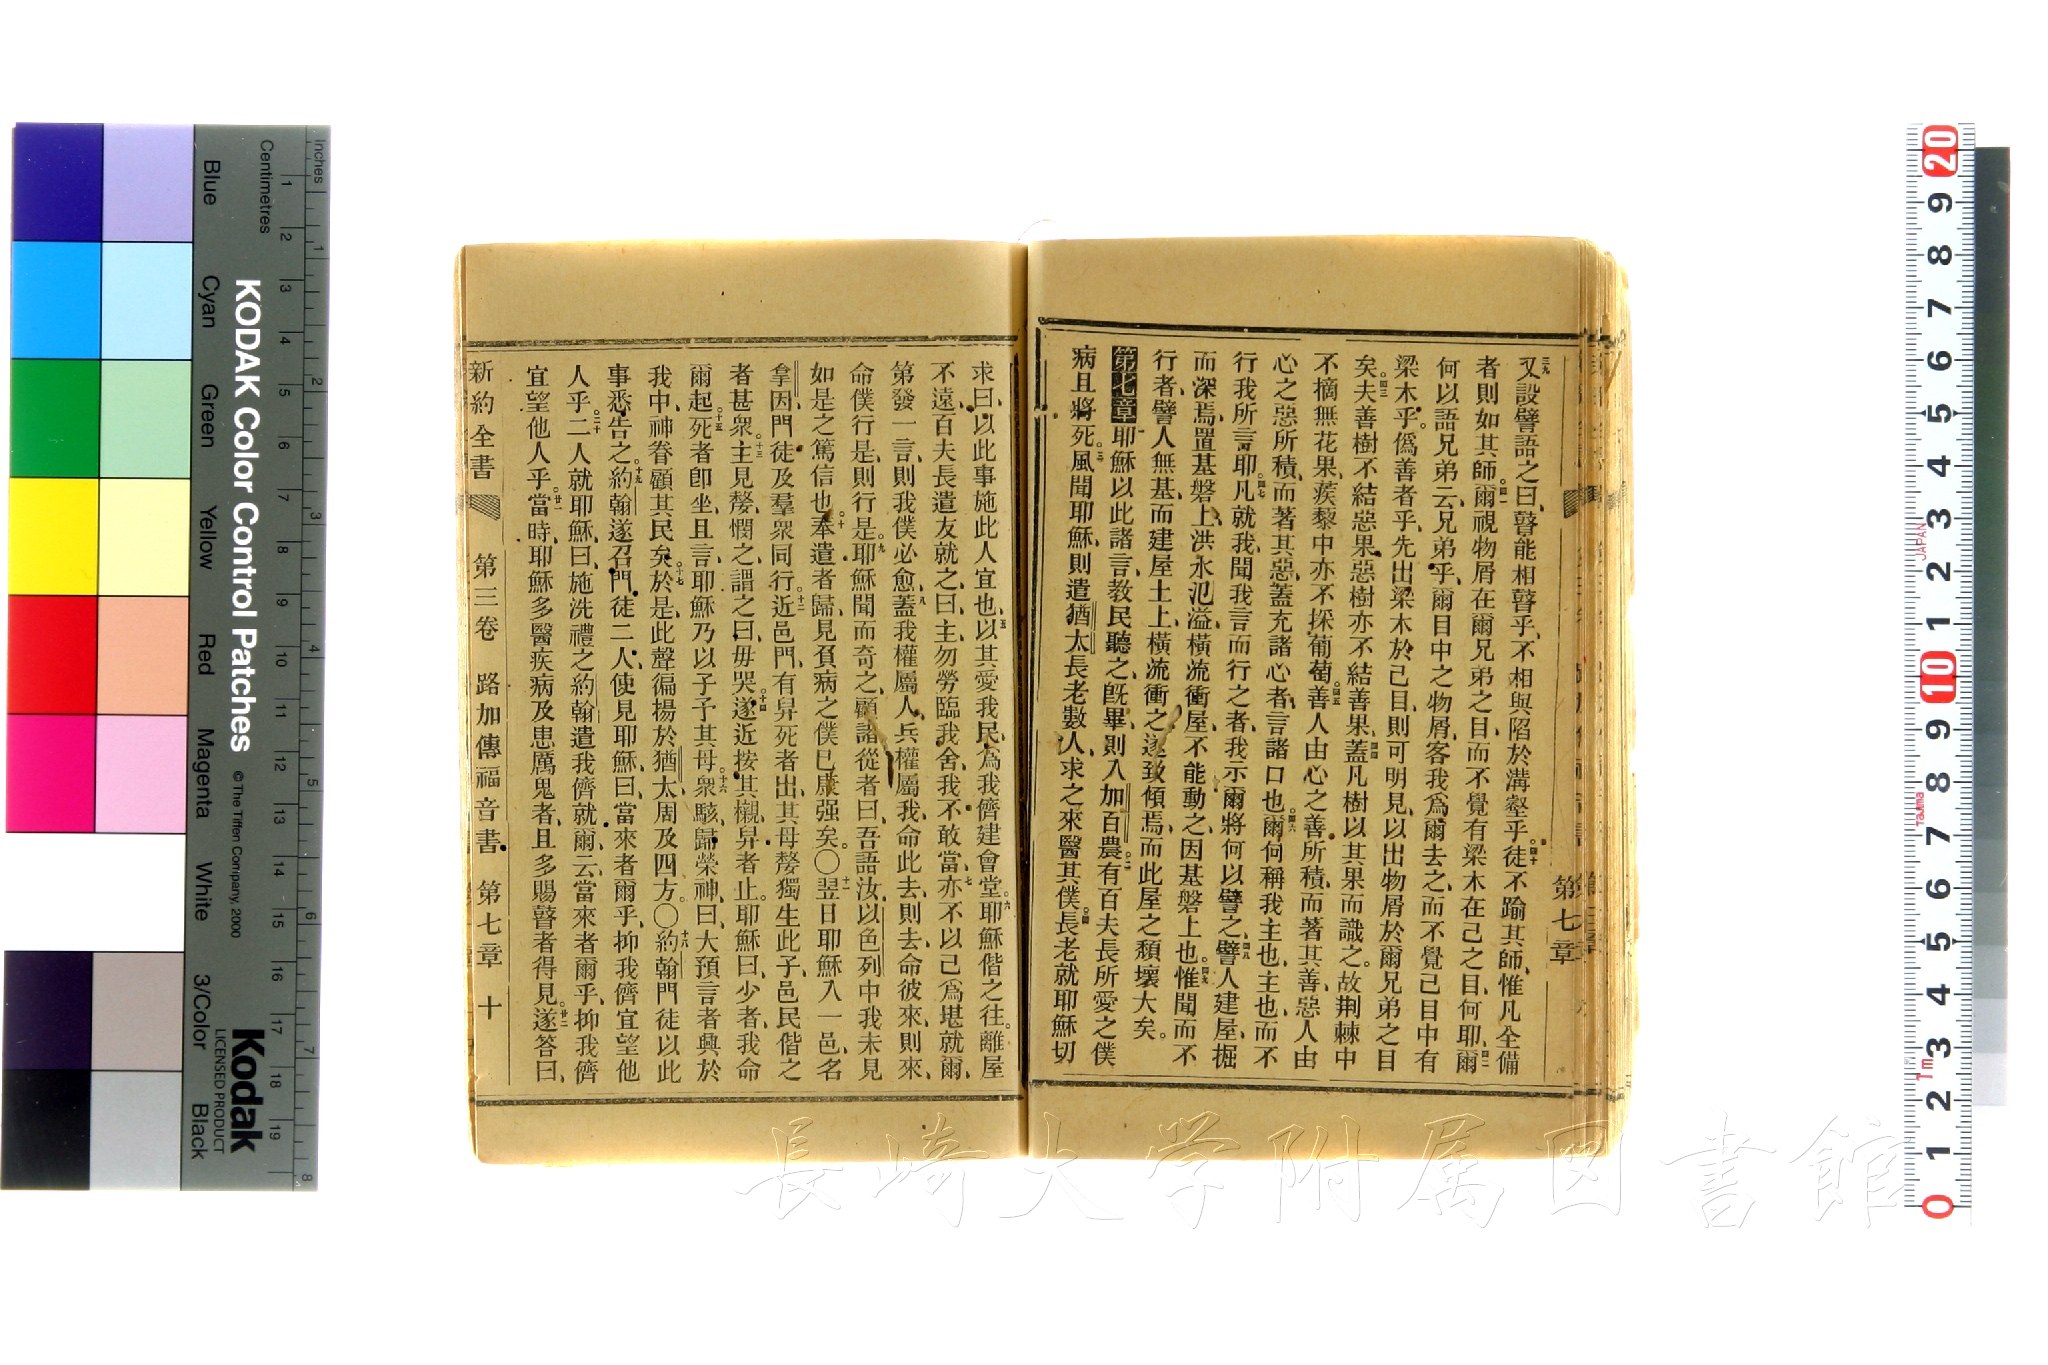 第七章
又設譬語之曰、瞽能相瞽乎、不相與陷於溝壑乎。四十徒不踰其師、惟凡全備
者則如其師。四一爾視物屑在爾兄弟之目、而不覺有梁木在己之目、何耶、四二爾
何以語兄弟云、兄弟乎、爾目中之物屑、客我爲爾去之、而不覺己目中有
梁木乎。僞善者乎、先出梁木於己目、則可明見、以出物屑於爾兄弟之目
矣。四三夫善樹不結惡果、惡樹亦不結善果、四四蓋凡樹以其果而識之。故荆棘中
不摘無花果、蒺藜中亦不採葡萄。四五善人由心之善所積、而著其善、惡人由
心之惡所積、而著其惡、蓋充諸心者、言諸口也。四六爾何稱我主也、主也、而不
行我所言耶。四七凡就我、聞我言而行之者、我示爾將何以譬之。四八譬人建屋、掘
而深焉、置基磐上、洪水氾溢、橫流衝屋、不能動之、因基磐上也。四九惟聞而不
行者、譬人無基而建屋土上、橫流衝之、遂致傾焉、而此屋之頹壞大矣。
第七章耶穌以此諸言、教民聽之、旣畢、則入加百農。二有百夫長所愛之僕
病且將死。三風聞耶穌、則遣猶太長老數人、求之來醫其僕。四長老就耶穌切
求曰、以此事施此人宜也、五以其愛我民、爲我儕建會堂。六耶穌偕之往。離屋
不遠、百夫長遣友就之曰、主、勿勞臨我舍、我不敢當、七亦不以己爲堪就爾、
第發一言、則我僕必愈、八蓋我權屬人、兵權屬我、命此去則去、命彼來則來、
命僕行是、則行是。九耶穌聞而奇之、顧諸從者曰、吾語汝、以色列中我未見
如是之篤信也。十奉遣者歸、見負病之僕已康强矣。〇十一翌日耶穌入一邑、名
拿因、門徒及羣衆同行、十二近邑門、有舁死者出、其母嫠、獨生此子、邑民偕之
者甚衆。十三主見嫠憫之、謂之曰、毋哭、十四遂近按其櫬、舁者止。耶穌曰、少者、我命
爾起。十五死者卽坐、且言、耶穌乃以子予其母。十六衆駭、歸榮神曰、大預言者興於
我中、神眷顧其民矣。十七於是此聲徧揚於猶太、周及四方。〇十八約翰門徒以此
事悉告之。十九約翰遂召門徒二人、使見耶穌曰、當來者爾乎、抑我儕宜望他
人乎。二十二人就耶穌曰、施洗禮之約翰遣我儕就爾、云當來者爾乎、抑我儕
宜望他人乎。廿一當時、耶穌多醫疾病及患厲鬼者、且多賜瞽者得見。廿二遂答曰、
新約全書 第三卷 路加傳福音書 第七章 十
Inches
Centimetres
KODAK Color Control Patches
© The Tiffen Company, 2000
Kodak
LICENSED PRODUCT
Blue Cyan Green Yellow Red Magenta White 3/Color Black
JAPAN
Tajima
1m
長崎大学附属図書館